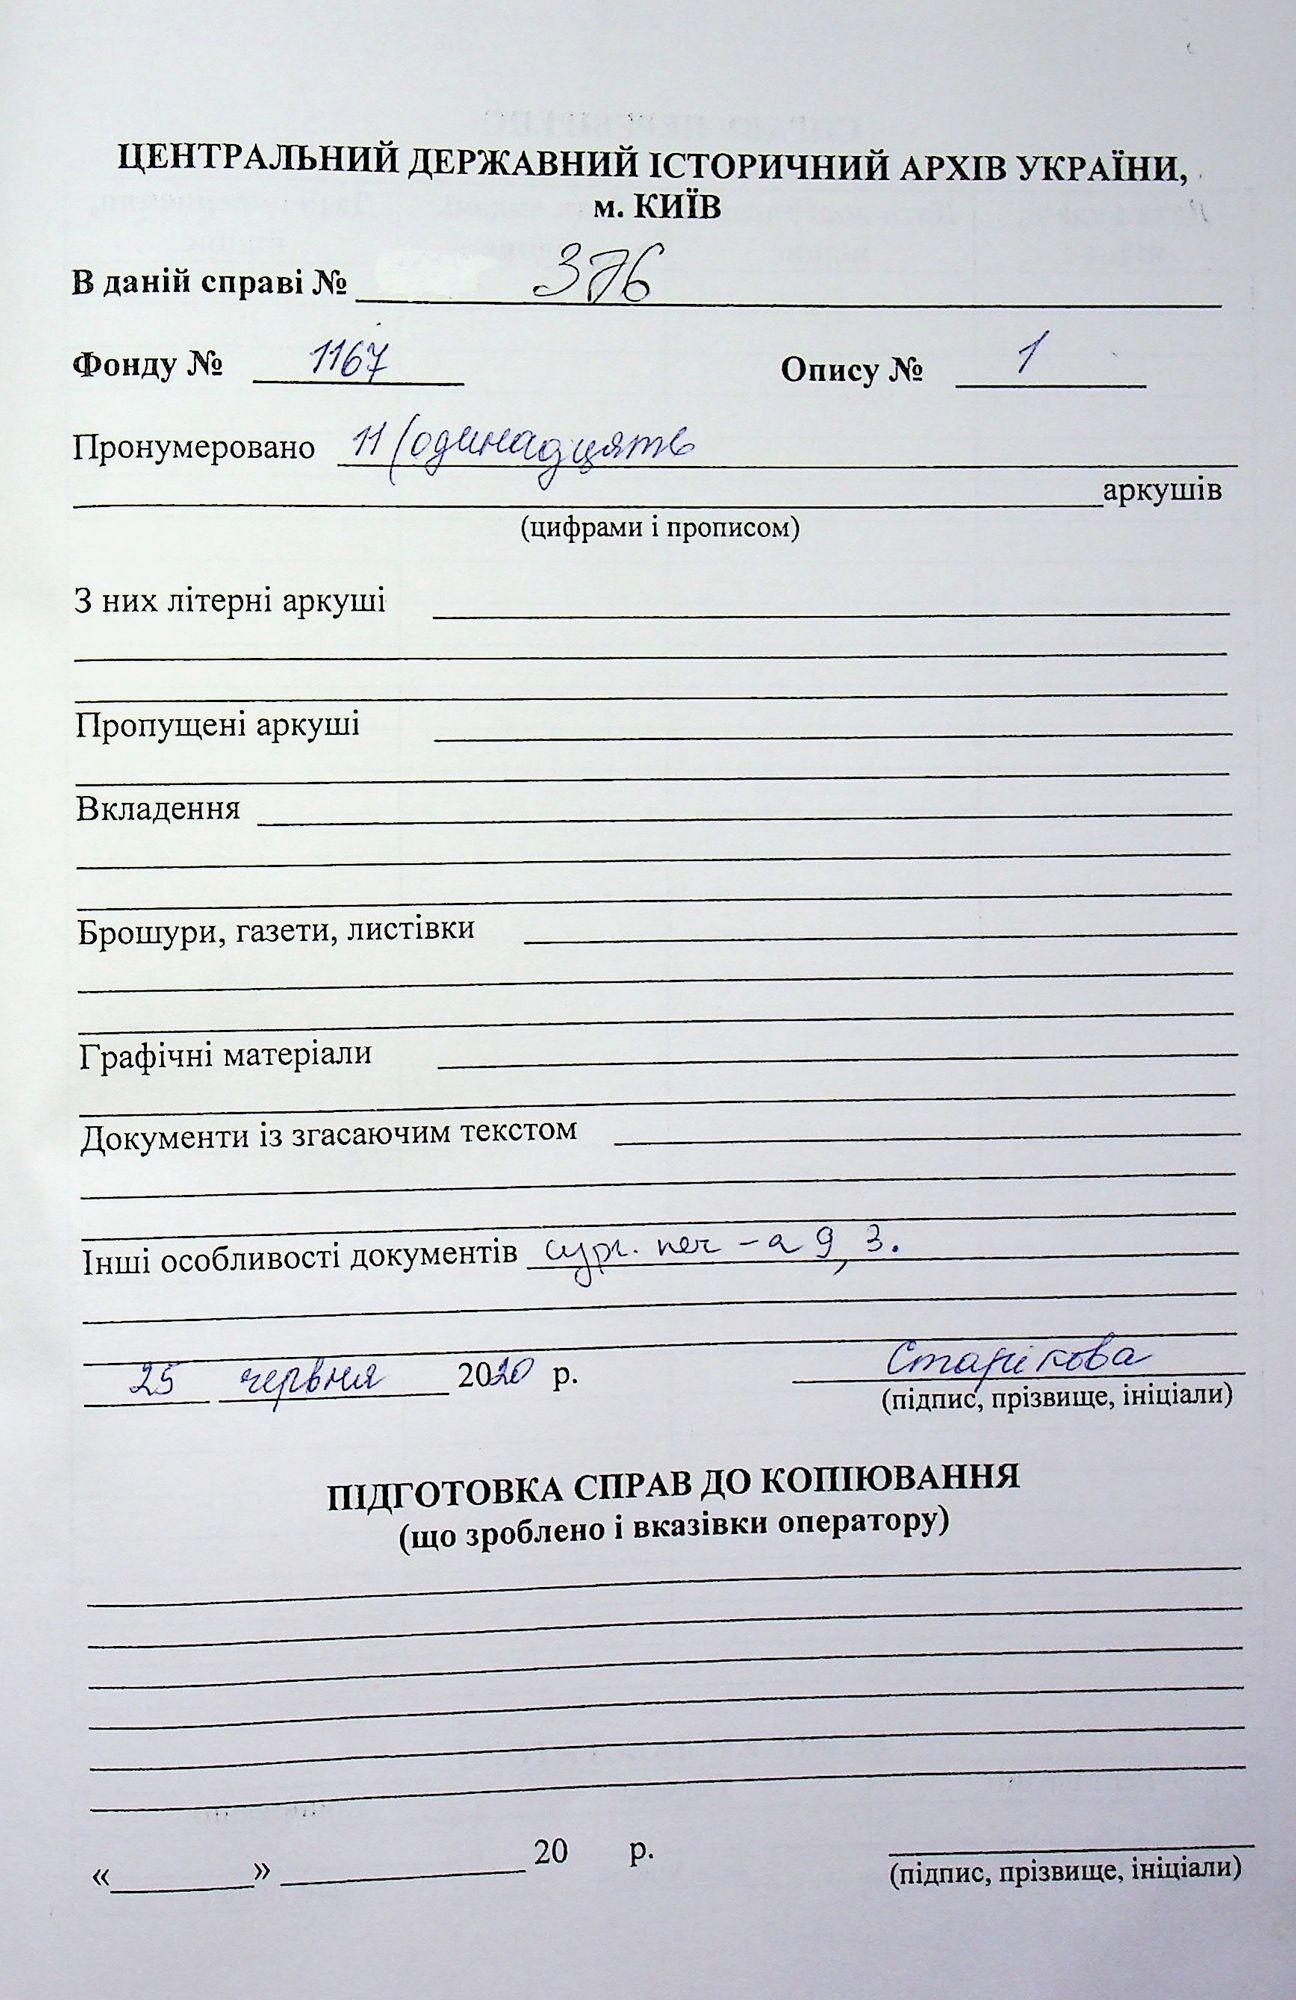 ЦЕНТРАЛЬНИЙ ДЕРЖАВНИЙ ІСТОРИЧНИЙ АРХІВ УКРАЇНИ,
м. КИЇВ
В даній справі № 376
Фонду № 1167 Опису № 1
Пронумеровано 11 (одинадцять
аркушів
(цифрами і прописом)
З них літерні аркуші
Пропущені аркуші
Вкладення
Брошури, газети, листівки
Графічні матеріали
Документи із згасаючим текстом
Інші особливості документів сург. печ - а 9, 3.
25 червня 2020 р. Старікова
(підпис, прізвище, ініціали)
ПІДГОТОВКА СПРАВ ДО КОПІЮВАННЯ
(що зроблено і вказівки оператору)
« » 20 р.
(підпис, прізвище, ініціали)